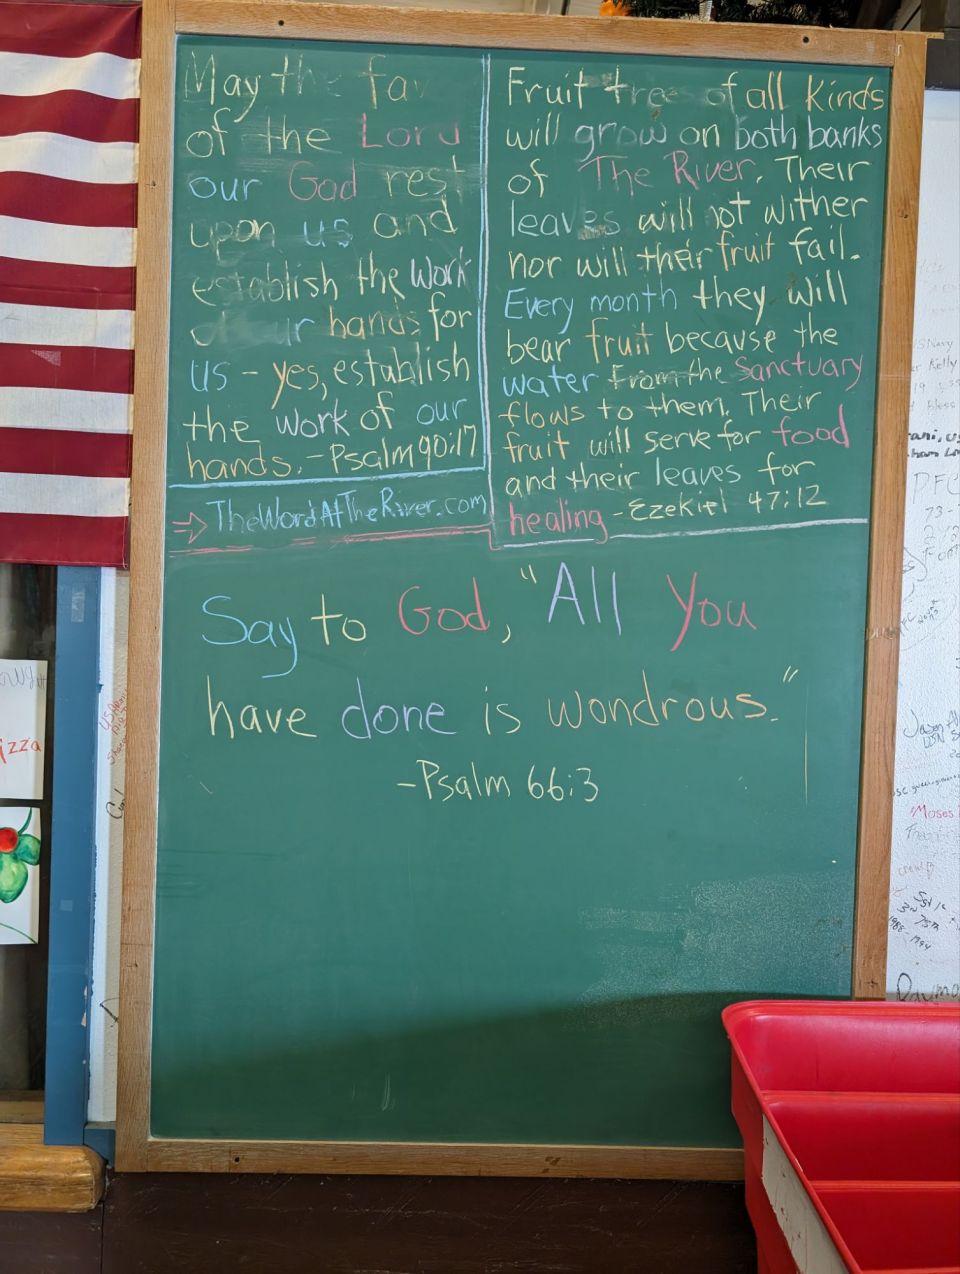 May the fav
of the Lord
our God rest
upon us and
establish the work
of our hands for
us - yes, establish
the work of our
hands. - Psalm 90:17
TheWordAtTheRiver.com
Fruit tree of all kinds
will grow on both banks
of The River. Their
leaves will not wither
nor will their fruit fail.
Every month they will
bear fruit because the
water from the Sanctuary
flows to them. Their
fruit will serve for food
and their leaves for
healing - Ezekiel 47:12
Say to God, "All You
have done is wondrous."
- Psalm 66:3
izza
"Moses